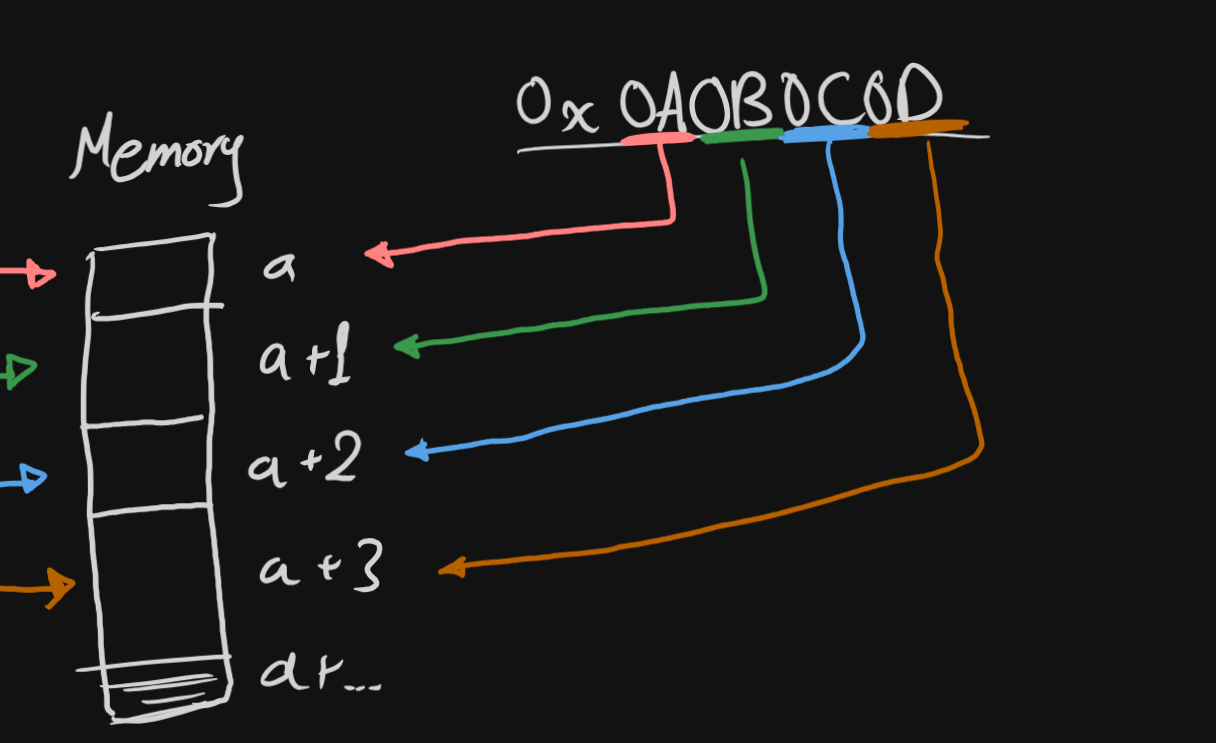 0x 0A0B0C0D
Memory
a
a+1
a+2
a+3
a+...